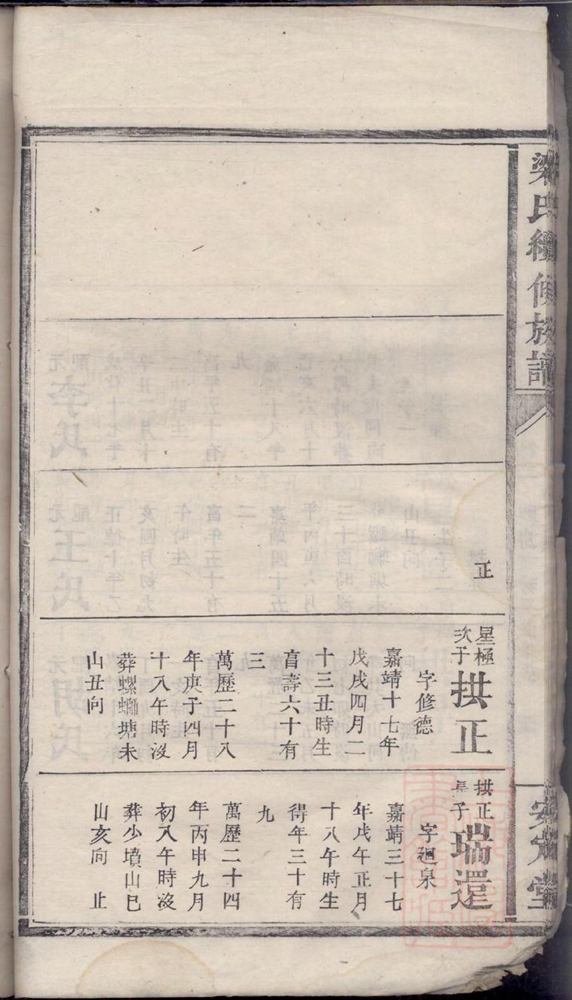 梁氏續修族譜
安定堂
正
星極
次子
拱正
字修德
嘉靖十七年
戊戌四月二
十三丑時生
享壽六十有
三
萬歷二十八
年庚子四月
十八午時沒
葬螺螄塘未
山丑向
拱正
長子
瑞還
字廻泉
嘉靖三十七
年戊午正月
十八午時生
得年三十有
九
萬歷二十四
年丙申九月
初八午時沒
葬少墳山巳
山亥向 止